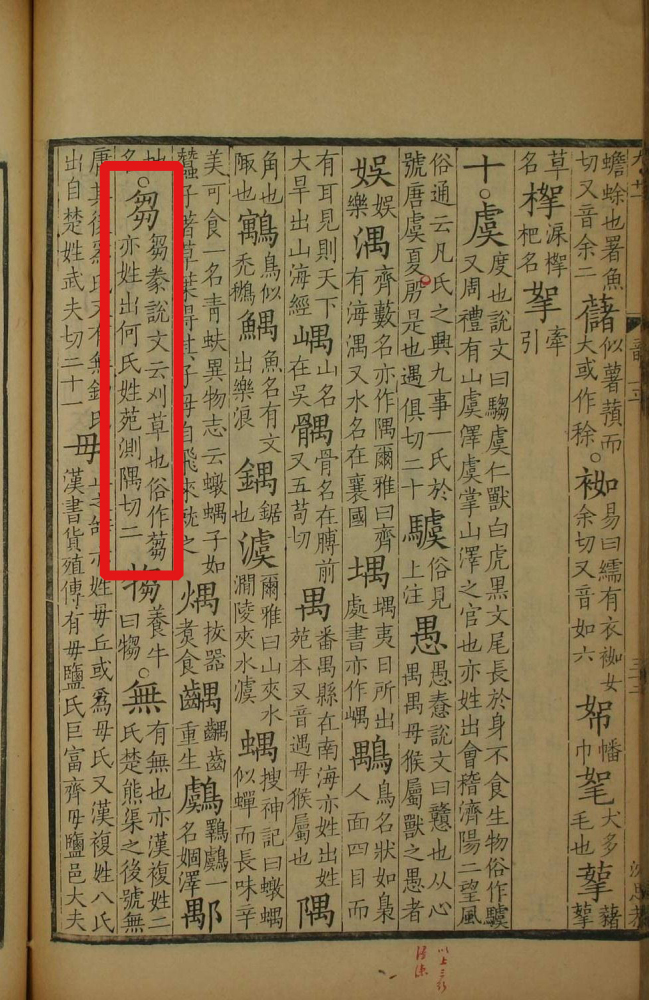 蟾蜍也署魚切又音余二藷似薯蕷而大或作稌。袽易曰繻有衣袽女余切又音如六帤幡巾毟犬多毛也蒘藸蒘
草名杷名挐牽引
十。虞度也說文曰騶虞仁獸白虎黑文尾長於身不食生物俗作驉又周禮有山虞澤虞掌山澤之官也亦姓出會稽濟陽二望風
俗通云凡氏之興九事一氏於號唐虞夏殷是也遇俱切二十俗見上注愚愚憃說文曰戇也从心禺禺母猴屬獸之愚者
娛娛樂湡齊藪名亦作隅爾雅曰齊有海湡又水名在襄國堣堣夷日所出處書亦作嵎鳥名狀如梟人面四目而
有耳見則天下大旱出山海經嵎山名在吳髃骨名在膊前又五苟切禺番禺縣在南海亦姓出姓苑本又音遇母猴屬也隅
角也陬也鳥似禿鶖鰅魚名有文出樂浪鍝鋸也澞爾雅曰山夾水澗陵夾水澞蝺搜神記曰蝺似蟬而長味辛
美可食一名青蚨異物志云蝺子如蠶子著草葉得其子母自飛來就之煑食齵齵齒重生一名婟澤鄅
地名。芻芻豢說文云刈草也俗作蒭亦姓出何氏姓苑測隅切二犓養牛曰犓。無有無也亦漢複姓二氏楚熊渠之後號無
庸其後爲氏又有無鉤氏出自楚姓武夫切二十一毋止之辭亦姓毋丘或爲毋氏又漢複姓八氏漢書貨殖傳有毋鹽氏巨富齊毋鹽邑大夫